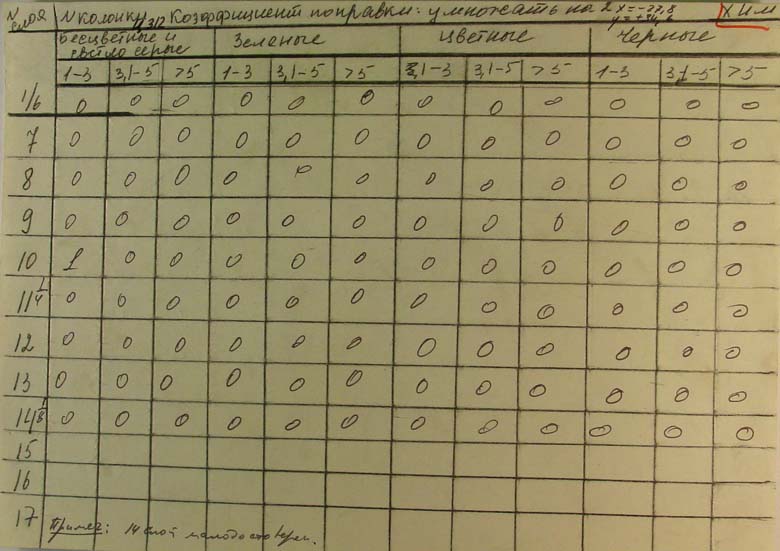 N слоя N колонки 312 Коэффициент поправки: умножать на 2 x = -27,8 y = +34,6 ХИМ
Бесцветные и светло серые Зеленые Цветные Черные
1-3 3,1-5 >5 1-3 3,1-5 >5 3,1-3 3,1-5 >5 1-3 3,1-5 >5
1/6 0 0 0 0 0 0 0 0 0 0 0 0
7 0 0 0 0 0 0 0 0 0 0 0 0
8 0 0 0 0 0 0 0 0 0 0 0 0
9 0 0 0 0 0 0 0 0 0 0 0 0
10 1 0 0 0 0 0 0 0 0 0 0 0
11 1/4 0 0 0 0 0 0 0 0 0 0 0 0
12 0 0 0 0 0 0 0 0 0 0 0 0
13 0 0 0 0 0 0 0 0 0 0 0 0
14 1/8 0 0 0 0 0 0 0 0 0 0 0 0
15
16
17
Примеч: 14 слой малодостоверен.